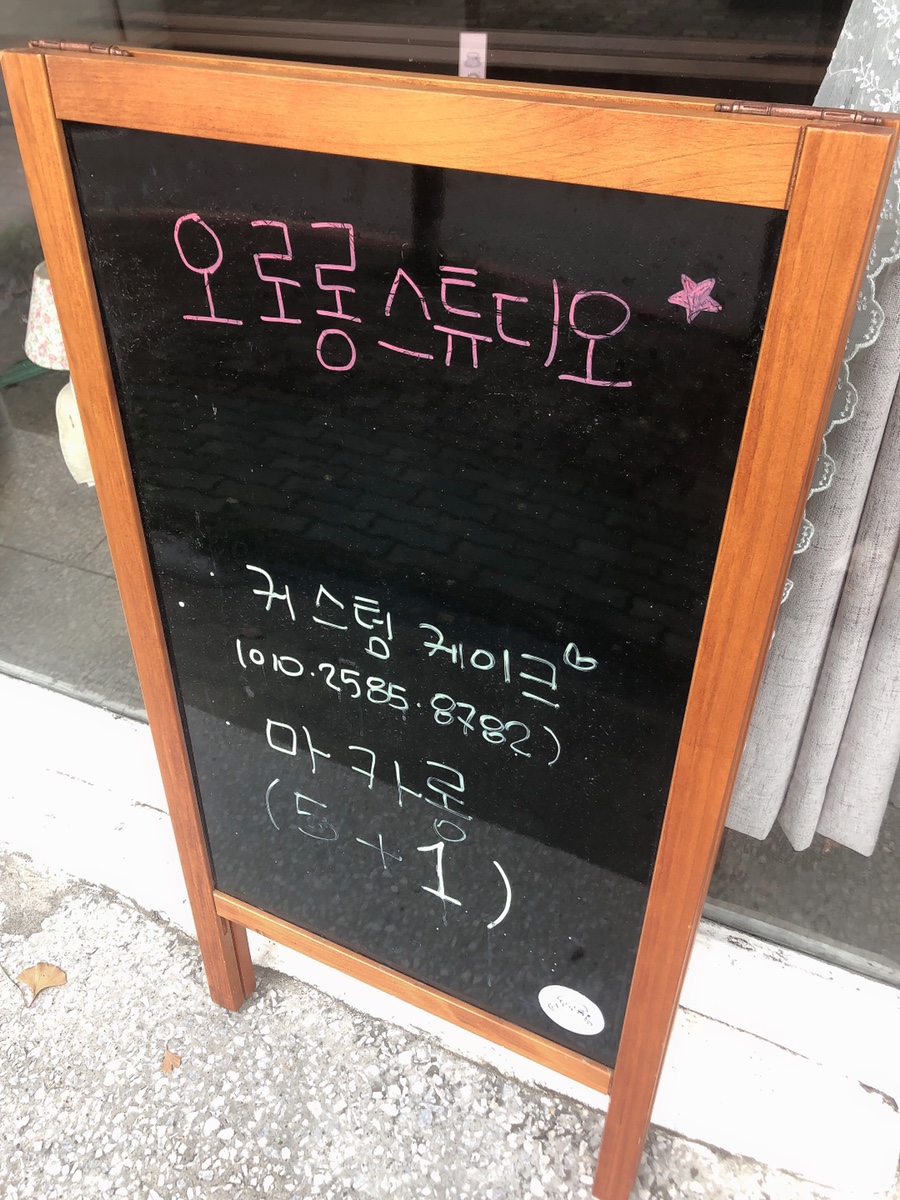 오로롱스튜디오
커스텀 케이크
(010.2585.8782)
마카롱
(5+1)